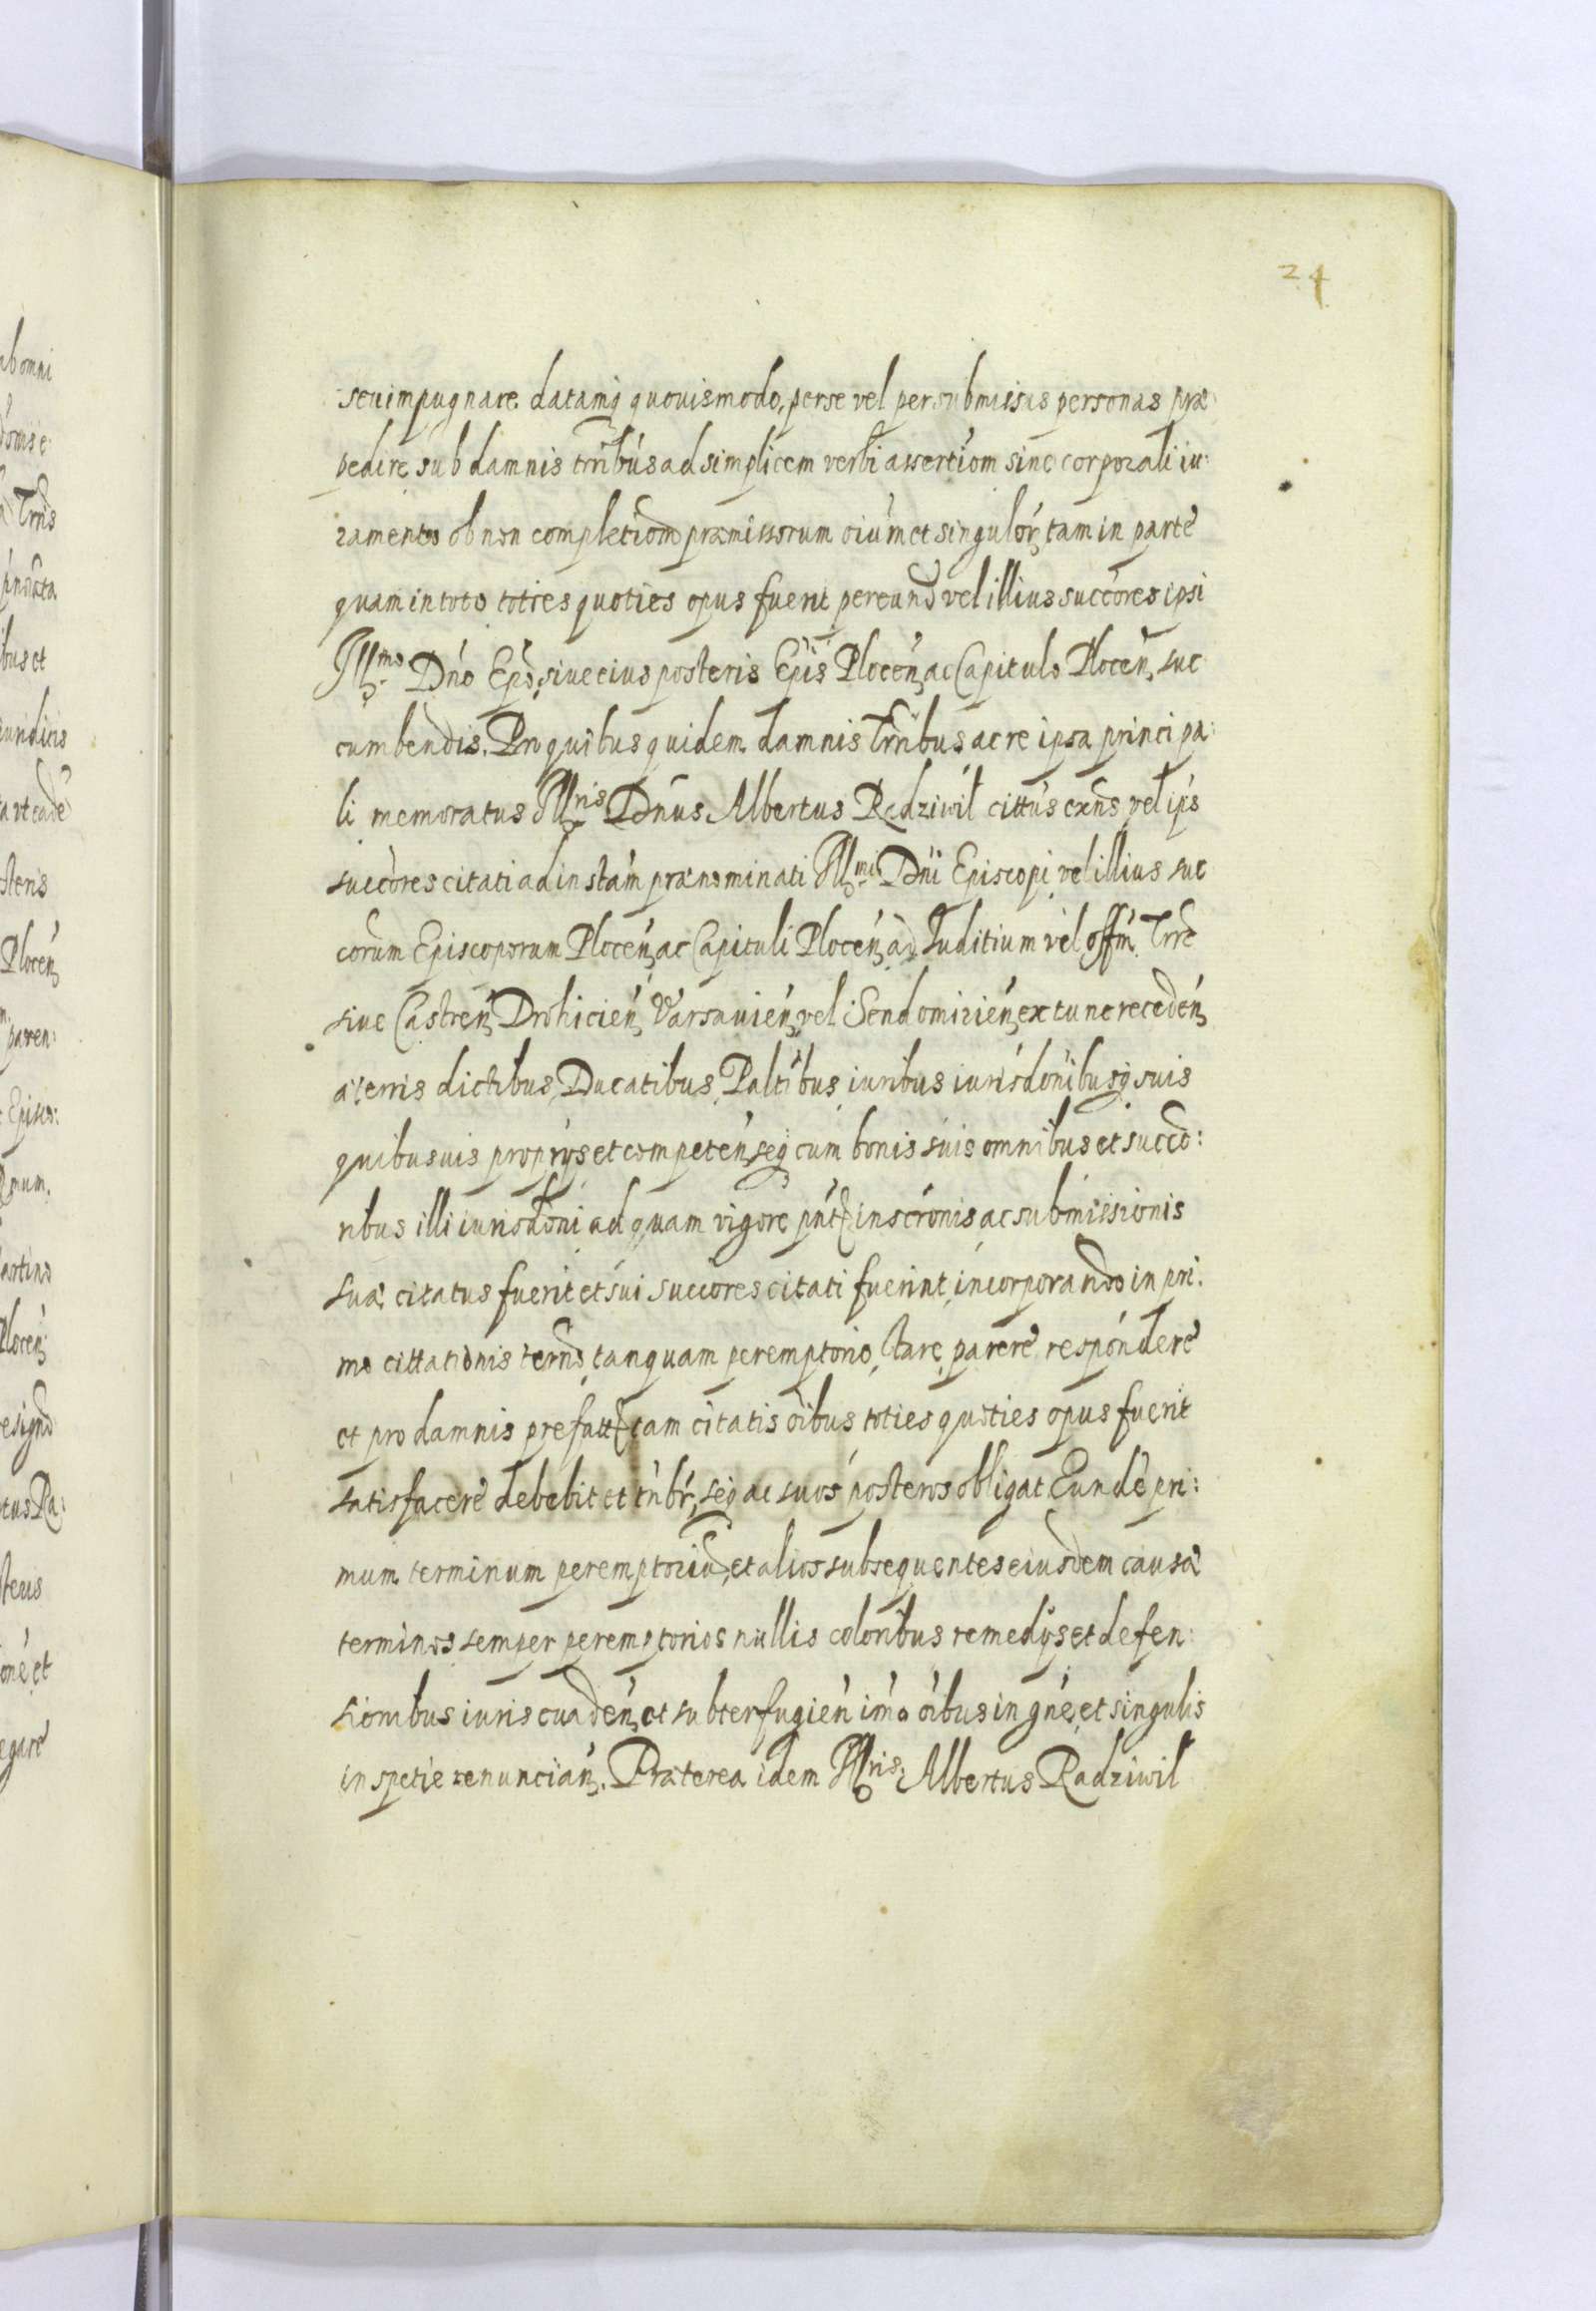 24
seu impugnare datamq quouismodo, per se vel per submissas personas præ:
pedire sub damnis trribus ad simplicem verbi assertiom sine corporali iu:
ramento ob non completiom præmissorum oium et singulor, tam in parte
quam in toto toties quoties opus fuerit per eund vel illius succores ipsi
Illmo Dno Epo, siue eius posteris Epis Plocen, ac Capitulo Plocen, suc
cumbendis. Pro quibus quidem damnis trribus ac re ipsa principa:
li memoratus Illris Dnus Albertus Radziwil cittus exns vel ips
succores citati ad instam prænominati Illmi Dni Episcopi vel illius suc
corum Episcoporum Plocen, ac Capituli Plocen, ad Iuditium vel offm Trre
siue Castren, Drohicien, Varsauien, vel Sendomirien, ex tunc receden,
a terris dictibus, Ducatibus, Paltibus, iuribus iurisdonibusq suis
quibusuis proprijs et competen, seq cum bonis suis omnibus et succo:
ribus illi iurisdoni ad quam vigore pnt inscronis, ac submissionis
suæ citatus fuerit et sui succores citati fuerint, incorporando in pri:
mo cittationis termo, tanquam peremptorio, stare, parere respondere
et pro damnis prefatt tam citatis oibus toties quoties opus fuerit
satisfacere debebit et tnbr, seq ac suos posteros obligat Eunde pri:
mum terminum peremptoriu, et alios subsequentes eiusdem causæ
terminos semper peremptorios nullis coloribus remedijs et defen:
sionibus iuris euaden, et subterfugien imo oibus in gne, et singulis
in spetie renuncian,. Præterea idem Illris Albertus Radziwil